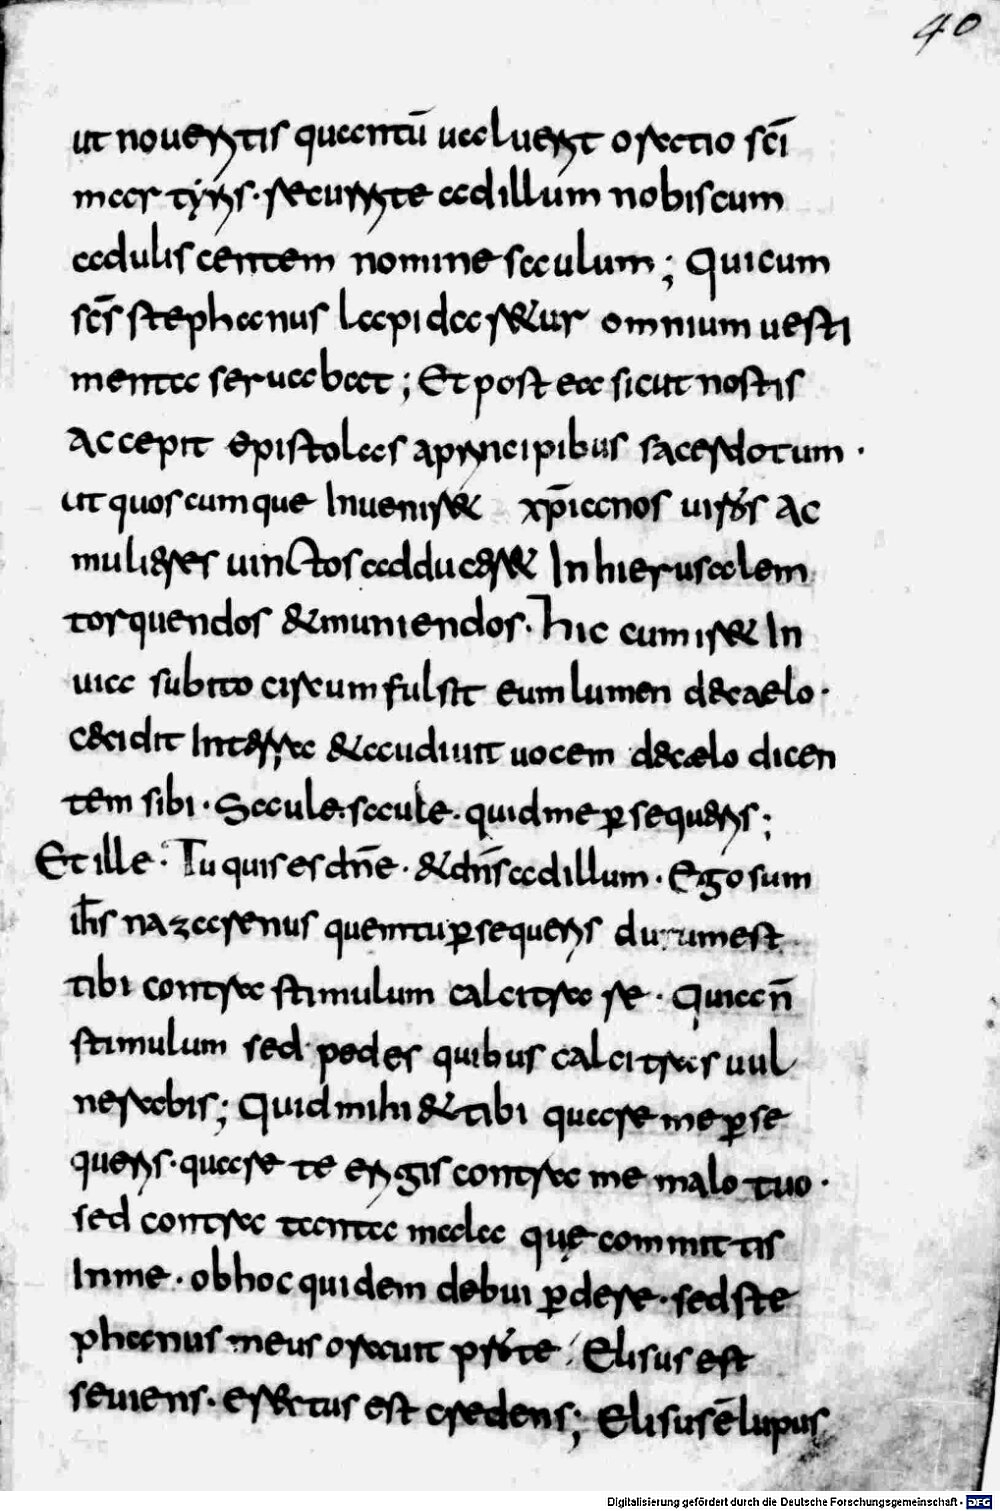 40
ut noueritis quantū ualuerit oratio sc̄i
martyris. recurrite ad illum nobiscum
aduliscentem nomine saulum; Quicum
sc̄s stephanus lapidaretur omnium uesti
menta seruabat; Et post ea sicut nostis
Accepit epistolas aprincipibus sacerdotum.
ut quoscumque Inuenisset xp̄ianos uiros Ac
mulieres uinctos adduceret In hierusalem
torquendos & muniendos. hic cum iret In
uia subito circumfulsit eum lumen de caelo.
cecidit Interra & audiuit uocem de cælo dicen
tem sibi. Saule. saule. quid me ꝑsequeris;
Et ille. Tu quis es dn̄e. & dn̄s ad illum. Ego sum
ih̄s nazarenus quem tu ꝑsequeris durum est
tibi contra stimulum calcitrare. Quia n̄
stimulum sed pedes quibus calcitras uul
nerabis; Quid mihi & tibi quare me ꝑse
queris. quare te erigis contra me malo tuo.
sed contra tanta mala quę committis
Inme. ob hoc quidem debui ꝑdere. sed ste
phanus meus orauit pro te. Elisus est
seuiens. erectus est credens; Elisus ē lupus
Digitalisierung gefördert durch die Deutsche Forschungsgemeinschaft - DFG